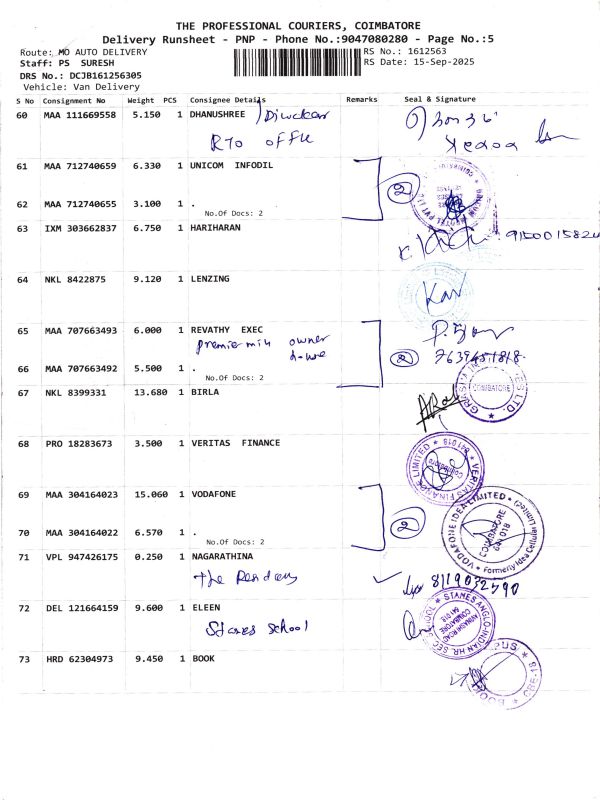 THE PROFESSIONAL COURIERS, COIMBATORE
Delivery Runsheet - PNP - Phone No.:9047080280 - Page No.:5
Route: MO AUTO DELIVERY RS No.: 1612563
Staff: PS SURESH RS Date: 15-Sep-2025
DRS No.: DCJB161256305
Vehicle: Van Delivery
S No Consignment No Weight PCS Consignee Details Remarks Seal & Signature
60 MAA 111669558 5.150 1 DHANUSHREE
RTO office
61 MAA 712740659 6.330 1 UNICOM INFODIL
2
62 MAA 712740655 3.100 1 .
No.Of Docs: 2
63 IXM 303662837 6.750 1 HARIHARAN
64 NKL 8422875 9.120 1 LENZING
65 MAA 707663493 6.000 1 REVATHY EXEC
owner
2
66 MAA 707663492 5.500 1 .
No.Of Docs: 2
67 NKL 8399331 13.680 1 BIRLA
COIMBATORE
68 PRO 18283673 3.500 1 VERITAS FINANCE
VERITAS FINANCE LIMITED
Coimbatore
641018
69 MAA 304164023 15.060 1 VODAFONE
2
VODAFONE IDEA LIMITED
COIMBATORE
641 018
70 MAA 304164022 6.570 1 .
No.Of Docs: 2
71 VPL 947426175 0.250 1 NAGARATHINA
The
8119032590
72 DEL 121664159 9.600 1 ELEEN
Stanes school
STANES ANGLO-INDIAN HR. SEC. SCHOOL
AVINASHI ROAD
COIMBATORE
641 018
73 HRD 62304973 9.450 1 BOOK